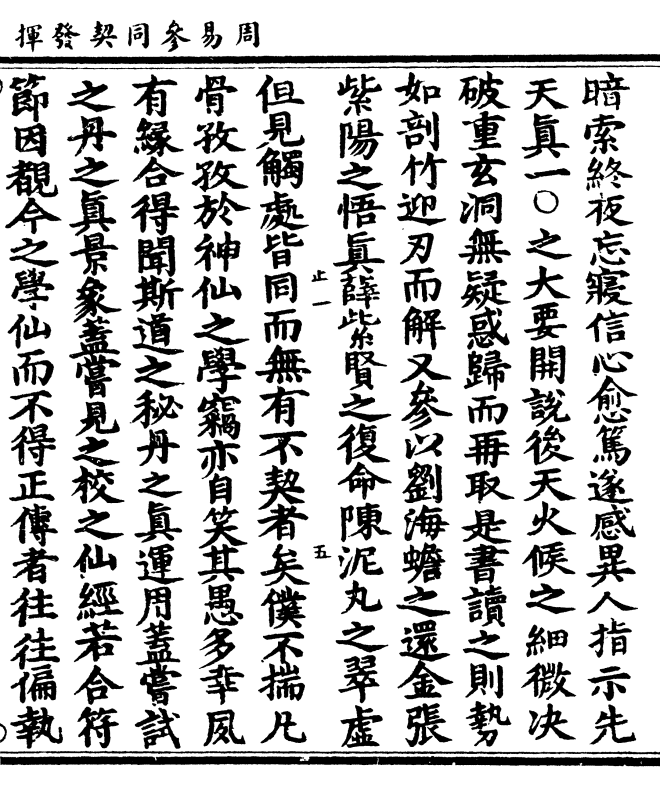 周易參同契發揮
暗索終夜忘寢信心愈篤遂感異人指示先
天眞一〇之大要開說後天火候之細微决
破重玄洞無疑惑歸而再取是書讀之則勢
如剖竹迎刃而解又參以劉海蟾之還金張
紫陽之悟眞薛紫賢之復命陳泥丸之翠虛
止一
五
但見觸處皆同而無有不契者矣僕不揣凡
骨孜孜於神仙之學竊亦自笑其愚多幸夙
有緣合得聞斯道之秘丹之眞運用蓋嘗試
之丹之眞景象蓋嘗見之校之仙經若合符
節因觀今之學仙而不得正傳者往往偏執